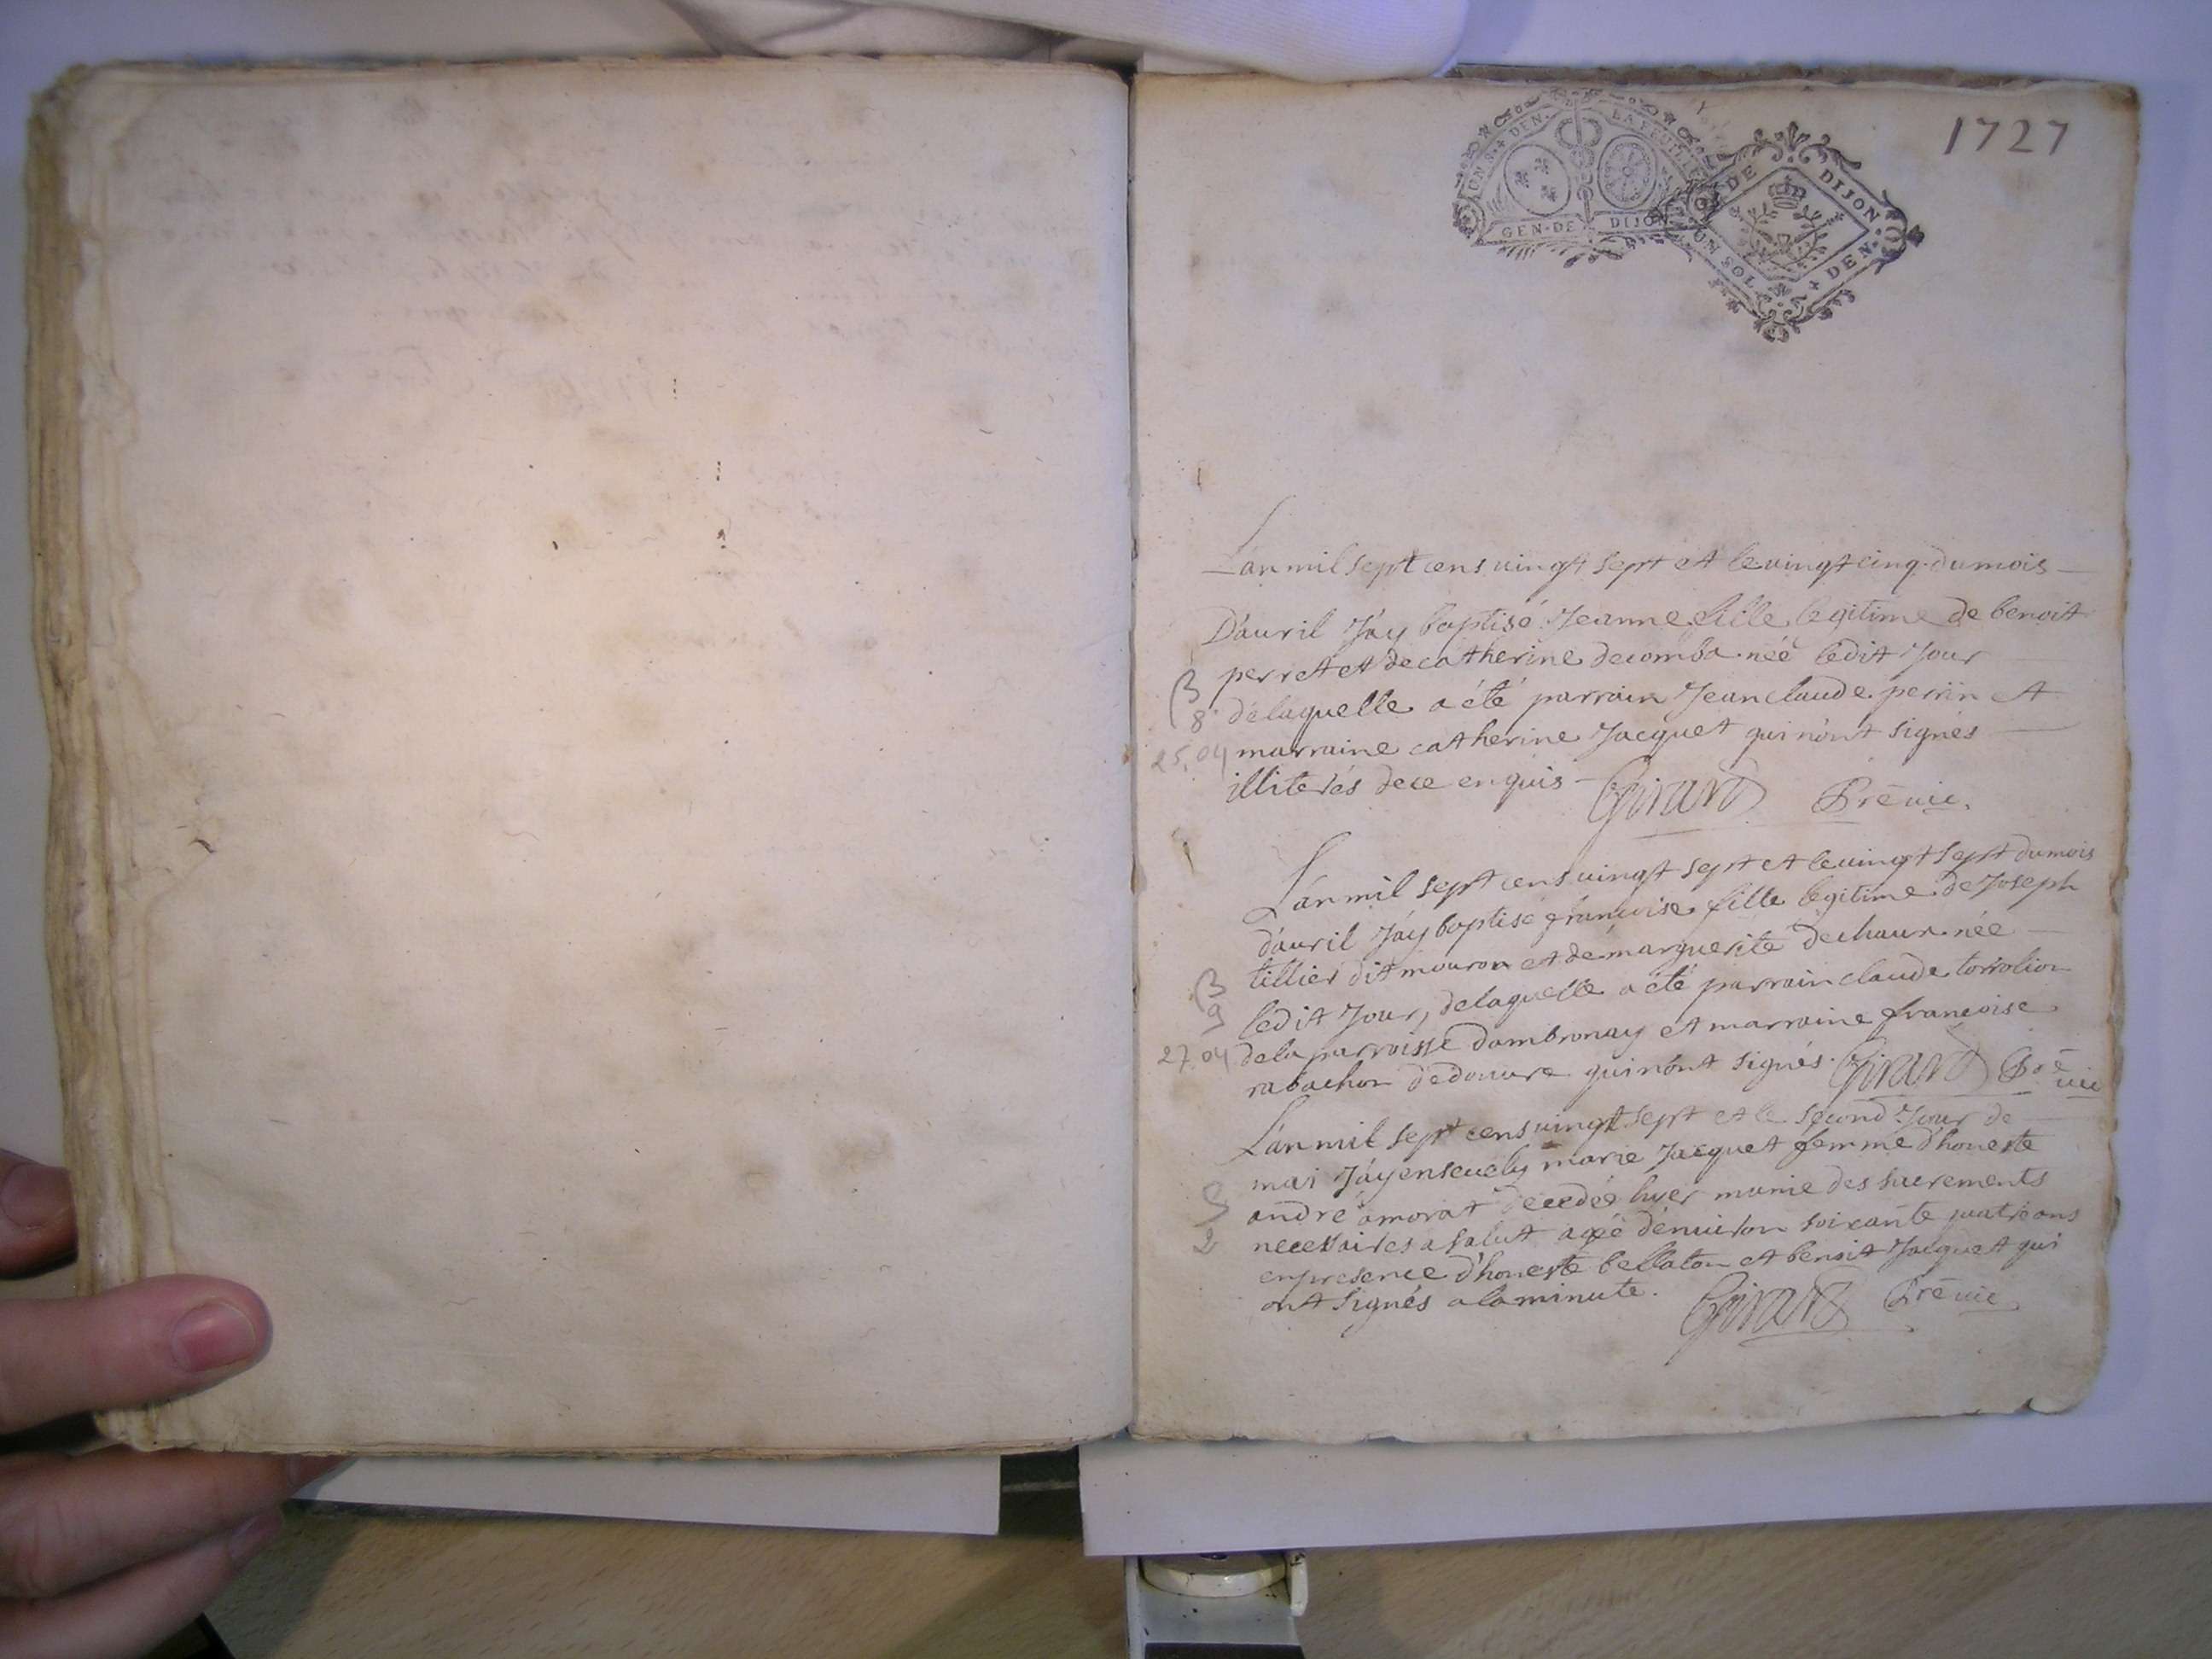 1727
UN S. 4 DEN. LA FEUILLE
GEN. DE DIJON
G. DE DIJON
UN SOL 4 DEN.
L'an mil sept cens vingt sept et le vingt cinq du mois
D'auril J'ay baptisé Jeanne fille legitime de benoit
perret et de catherine decomba née ledit Jour
B
8
delaquelle a été parrain Jean claude perrin et
25.04
marraine catherine Jacquet qui n'ont signés
illiterés de ce enquis Girard Prē vic.
L'an mil sept cens vingt sept et le vingt sept du mois
d'auril J'ay baptisé françoise fille legitime de Joseph
tillier dit mouron et de marguerite dechaux née
B
9
ledit Jour, delaquelle a été parrain claude
27.04
dela parroisse d'ambronay et marraine françoise
rabachon dedouure qui n'ont signés. Girard Prē
vic
L'an mil sept cens vingt sept et le second Jour de
mai J'ay enseuely marie Jacquet femme d'honeste
S
2
andré amorat decedée hyer munie des sacrements
necessaires a salut agée d'enuiron soixante quatre ans
en presence d'honeste bellaton et benoit Jacquet qui
ont signés a la minute. Girard Prē vic